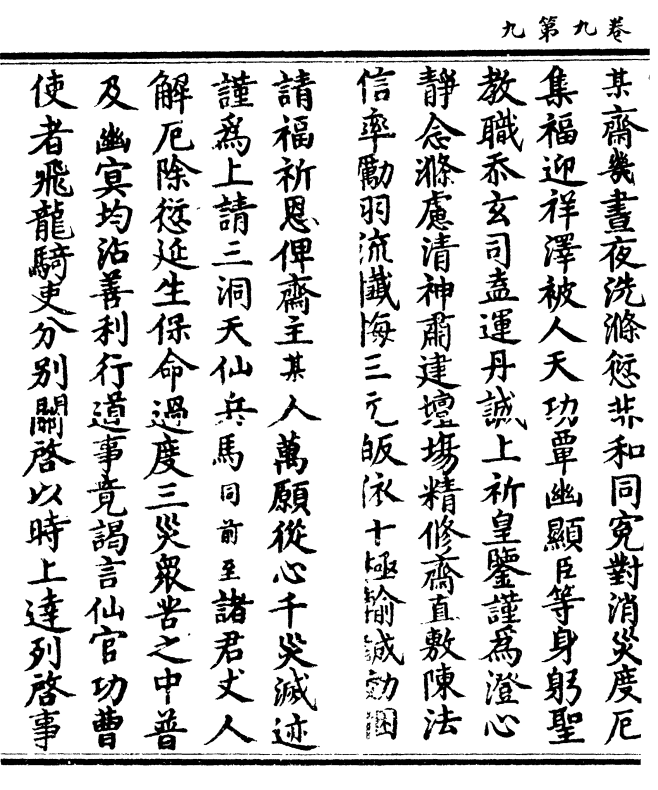 卷九第九
某齋幾晝夜洗滌愆非和同寃對消災度厄
集福迎祥澤被人天功覃幽顯臣等身躬聖
教職忝玄司盍運丹誠上祈皇鑒謹爲澄心
靜念滌慮清神肅建壇場精修齋直敷陳法
信率勵羽流懺悔三元皈依十極輸誠効
請福祈恩俾齋主某人萬願從心千災滅迹
謹爲上請三洞天仙兵馬同前至諸君丈人
解厄除愆延生保命過度三災衆苦之中普
及幽冥均沾善利行道事竟謁言仙官功曹
使者飛龍騎吏分别關啓以時上達列啓事